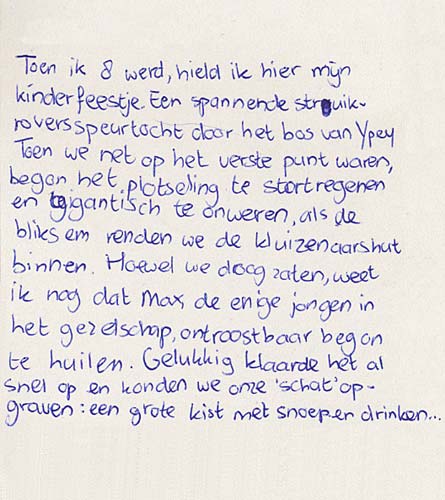 Toen ik 8 werd, hield ik hier mijn
kinderfeestje. Een spannende struik-
roversspeurtocht door het bos van Ypey
Toen we net op het verste punt waren,
began het plotseling te stortregenen
en gigantisch te onweren, als de
bliksem renden we de kluizenaarshut
binnen. Hoewel we droog zaten, weet
ik nog dat Max, de enige jongen in
het gezelschap, ontroostbaar began
te huilen. Gelukkig klaarde het al
snel op en konden we onze 'schat' op-
graven: een grote kist met snoep en drinken...